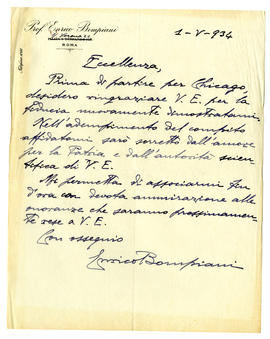 Prof. Enrico Bompiani
ROMA
1-V-934
Eccellenza,
Prima di partire per Chicago,
desidero ringraziare V. E. per la
fiducia nuovamente dimostratami.
Nell'adempimento del compito
affidatomi sarò sorretto dall'amore
per la Patria e dall'autorità scien
tifica di V. E.
Mi permetta di associarmi fin
d'ora con devota ammirazione alle
onoranze che saranno prossimamen
te rese a V. E.
Con ossequio
Enrico Bompiani